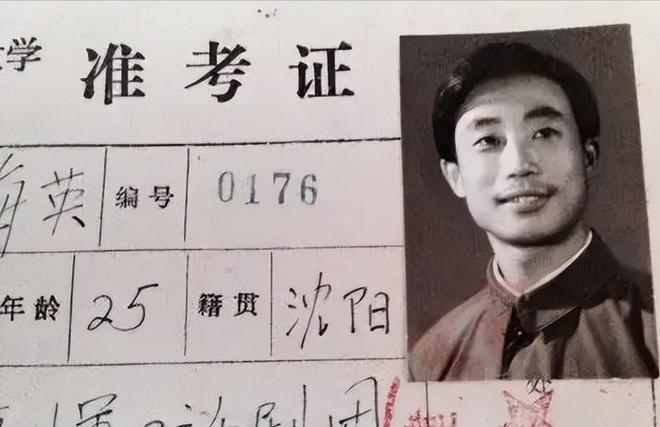 学 准考证
海英 编号 0176
年龄 25 籍贯 沈阳
话剧团